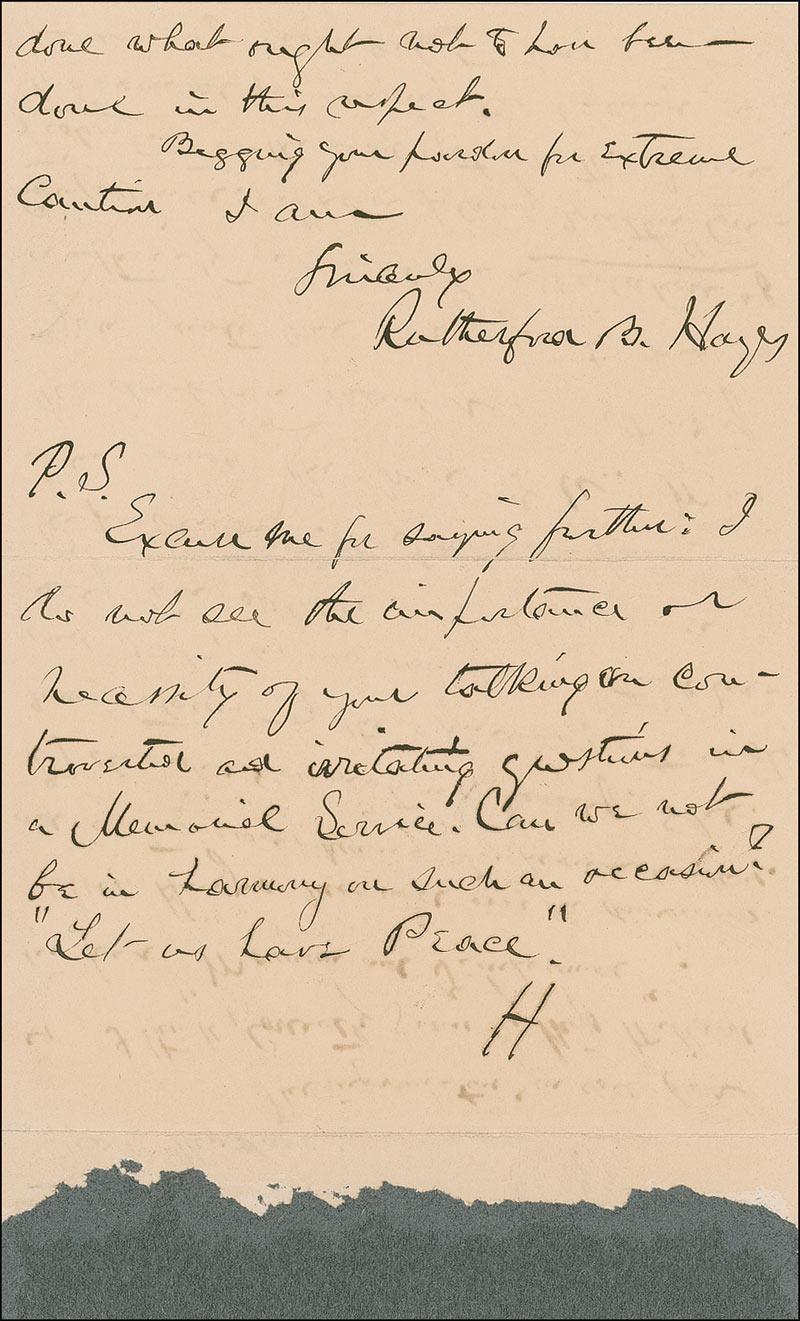 done what ought not to have been
done in this respect.
Begging your pardon for extreme
Caution I am
Sincerely
Rutherford B. Hayes
P.S.
Excuse me for saying further: I
do not see the importance or
necessity of your talking on con-
troverted and irritating questions in
a Memorial Service. Can we not
be in harmony on such an occasion?
"Let us have Peace".
H